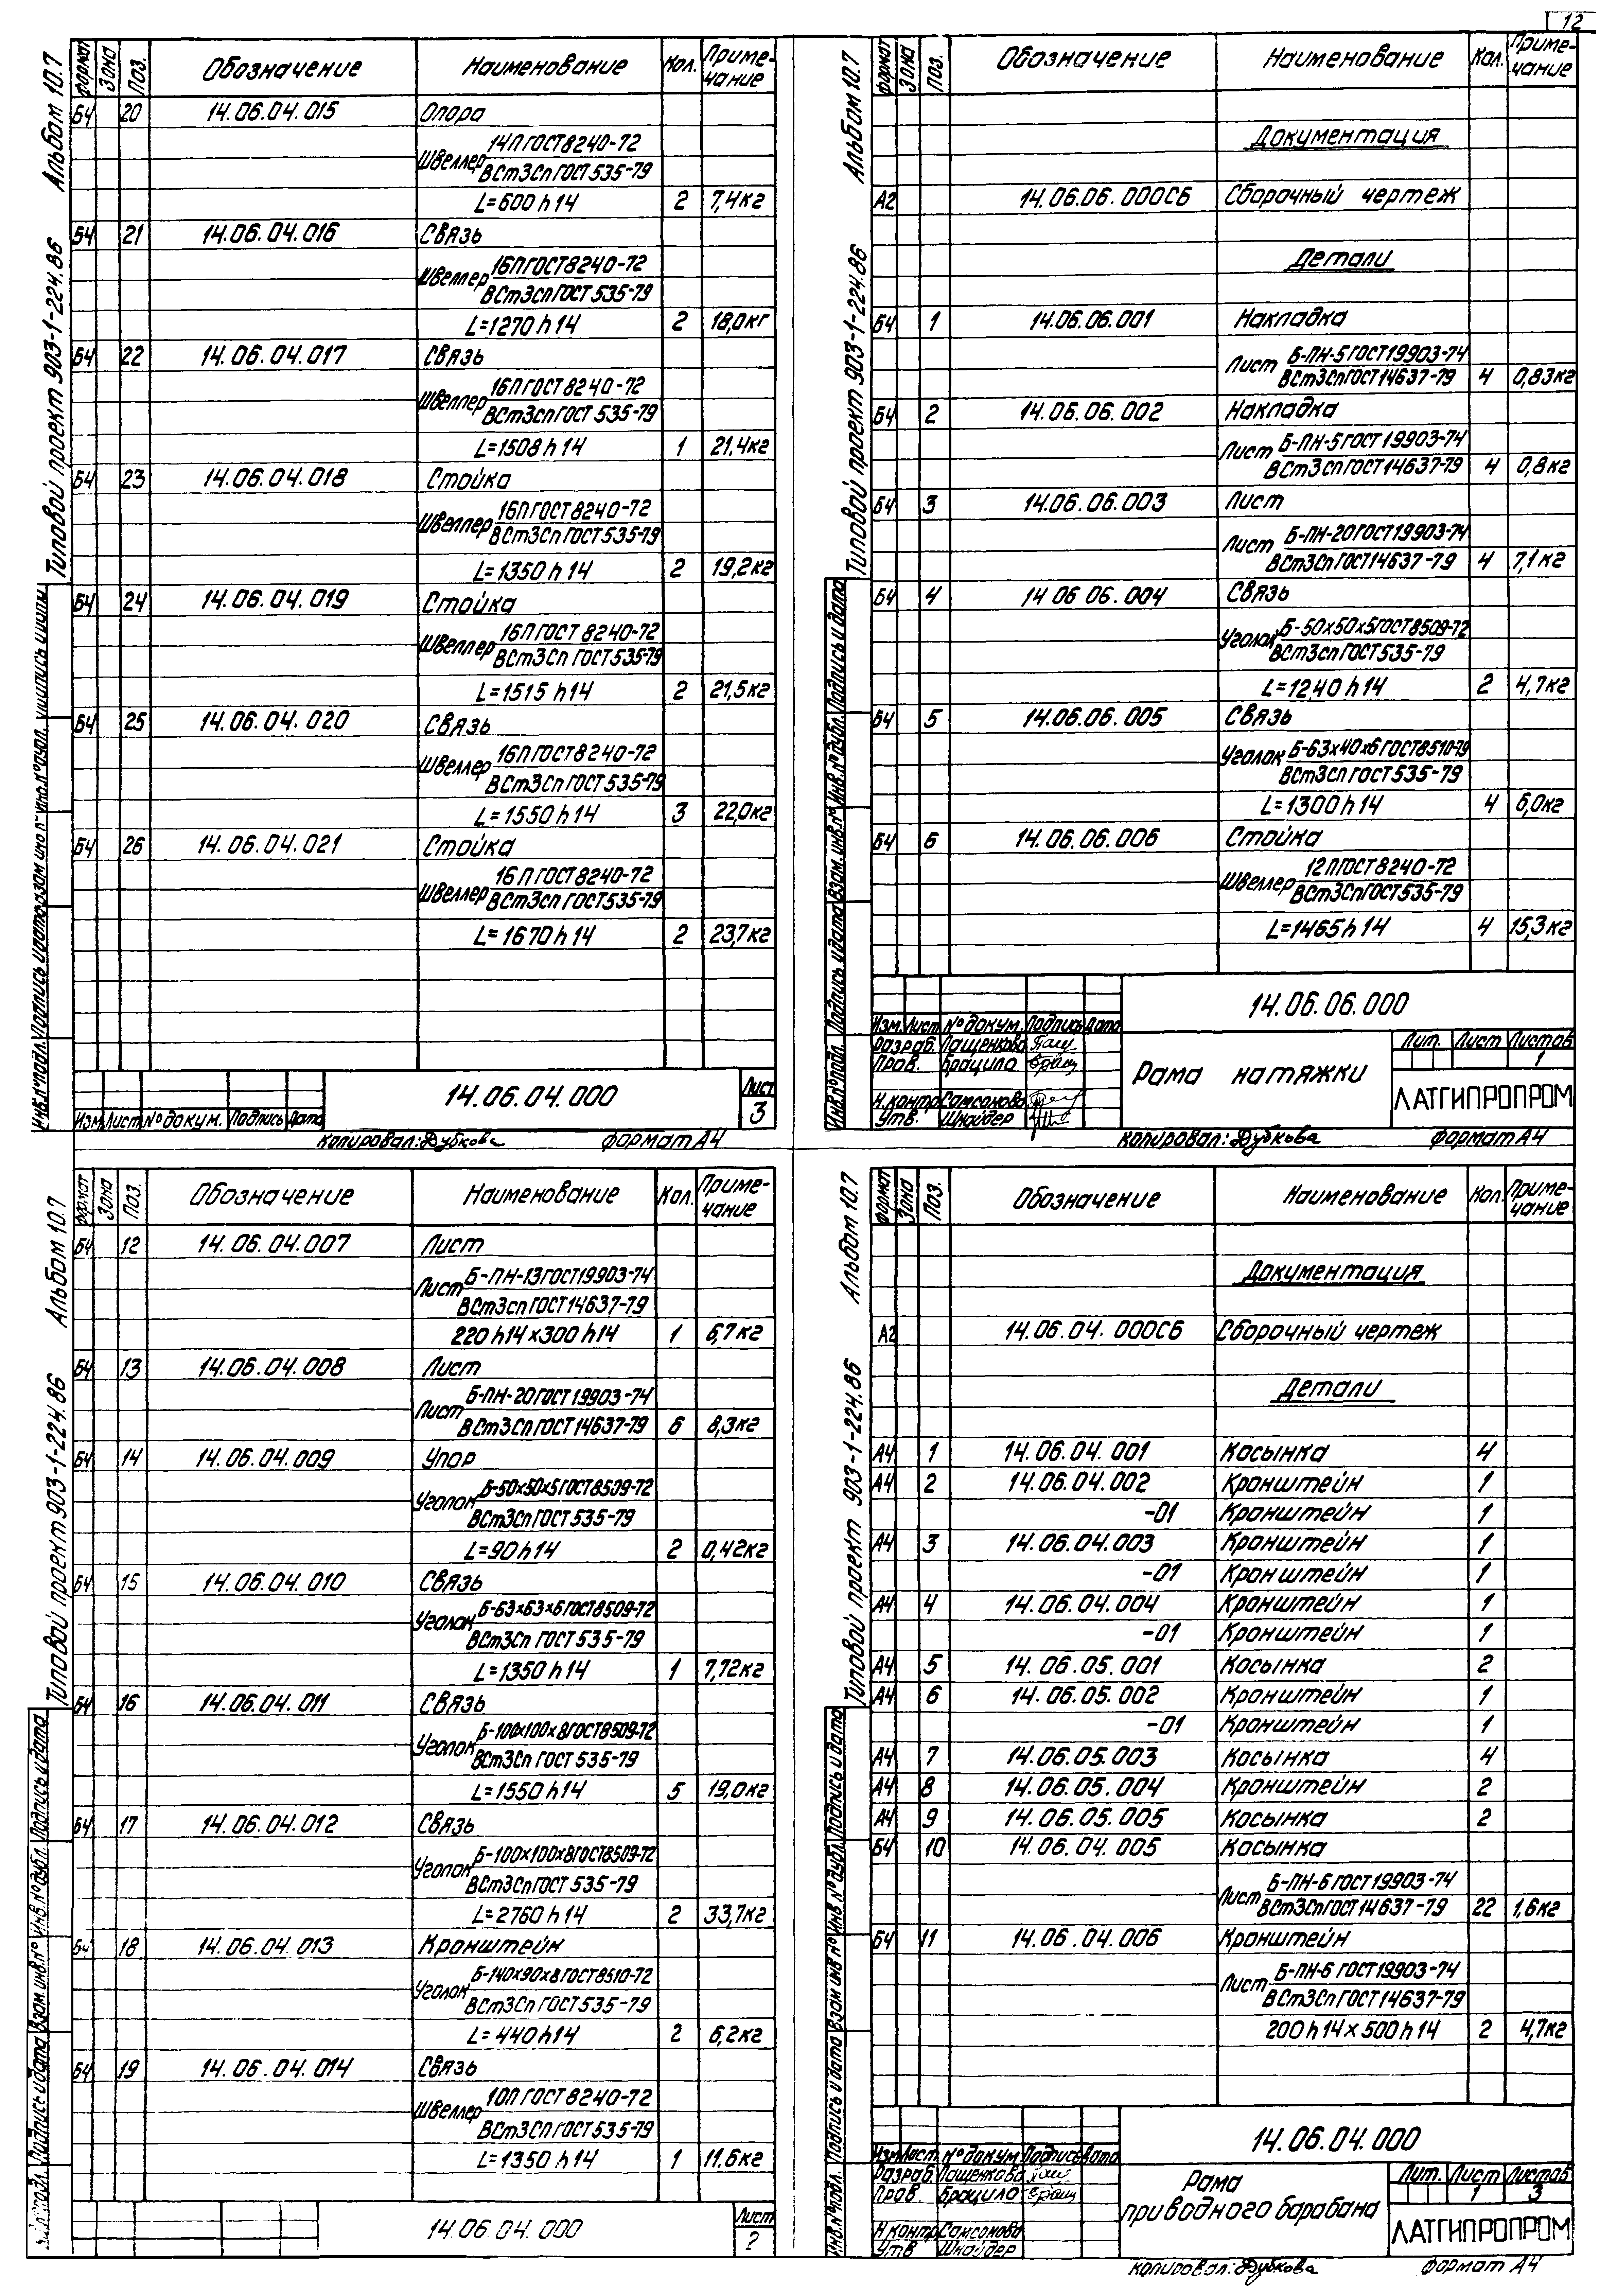 12
Альбом 10.7
Типовой проект 903-1-224.86
Формат Зона Поз. Обозначение Наименование Кол. Примечание
Б4 20 14.06.04.015 Опора
Швеллер 14П ГОСТ 8240-72
ВСт3сп ГОСТ 535-79
L=600 h14 2 7,4кг
Б4 21 14.06.04.016 Связь
Швеллер 16П ГОСТ 8240-72
ВСт3сп ГОСТ 535-79
L=1270 h14 2 18,0кг
Б4 22 14.06.04.017 Связь
Швеллер 16П ГОСТ 8240-72
ВСт3сп ГОСТ 535-79
L=1508 h14 1 21,4кг
Б4 23 14.06.04.018 Стойка
Швеллер 16П ГОСТ 8240-72
ВСт3сп ГОСТ 535-79
L=1350 h14 2 19,2кг
Б4 24 14.06.04.019 Стойка
Швеллер 16П ГОСТ 8240-72
ВСт3сп ГОСТ 535-79
L=1515 h14 2 21,5кг
Б4 25 14.06.04.020 Связь
Швеллер 16П ГОСТ 8240-72
ВСт3сп ГОСТ 535-79
L=1550 h14 3 22,0кг
Б4 26 14.06.04.021 Стойка
Швеллер 16П ГОСТ 8240-72
ВСт3сп ГОСТ 535-79
L=1670 h14 2 23,7кг
Инв.№подл. Подпись и дата
Изм Лист № докум. Подпись Дата
14.06.04.000
Лист
3
Копировал: Дубкова Формат А4
Альбом 10.7
Типовой проект 903-1-224.86
Формат Зона Поз. Обозначение Наименование Кол. Примечание
Документация
А2 14.06.06.000СБ Сборочный чертеж
Детали
Б4 1 14.06.06.001 Накладка
Лист Б-ПН-5 ГОСТ 19903-74
ВСт3сп ГОСТ 14637-79 4 0,83кг
Б4 2 14.06.06.002 Накладка
Лист Б-ПН-5 ГОСТ 19903-74
ВСт3сп ГОСТ 14637-79 4 0,8кг
Б4 3 14.06.06.003 Лист
Лист Б-ПН-20 ГОСТ 19903-74
ВСт3сп ГОСТ 14637-79 4 7,1кг
Б4 4 14 06 06.004 Связь
Уголок Б-50х50х5 ГОСТ 8509-72
ВСт3сп ГОСТ 535-79
L=1240 h14 2 4,7кг
Б4 5 14.06.06.005 Связь
Уголок Б-63х40х6 ГОСТ 8510-79
ВСт3сп ГОСТ 535-79
L=1300 h14 4 6,0кг
Б4 6 14.06.06.006 Стойка
Швеллер 12П ГОСТ 8240-72
ВСт3сп ГОСТ 535-79
L=1465 h14 4 15,3кг
Инв.№подл. Подпись и дата Взам.инв.№ Инв.№дубл. Подпись и дата
14.06.06.000
Изм. Лист № докум. Подпись Дата
Разраб. Пащенкова
Пров. Брацило
Н.контр Самсонова
Утв. Шнайдер
Рама натяжки
Лит. Лист Листов
1
ЛАТГИПРОПРОМ
Копировал: Дубкова Формат А4
Альбом 10.7
Типовой проект 903-1-224.86
Формат Зона Поз. Обозначение Наименование Кол. Примечание
Б4 12 14.06.04.007 Лист
Лист Б-ПН-13 ГОСТ 19903-74
ВСт3сп ГОСТ 14637-79
220 h14 х 300 h14 1 6,7кг
Б4 13 14.06.04.008 Лист
Лист Б-ПН-20 ГОСТ 19903-74
ВСт3сп ГОСТ 14637-79 6 8,3кг
Б4 14 14.06.04.009 Упор
Уголок Б-50х50х5 ГОСТ 8509-72
ВСт3сп ГОСТ 535-79
L=90 h14 2 0,42кг
Б4 15 14.06.04.010 Связь
Уголок Б-63х63х6 ГОСТ 8509-72
ВСт3сп ГОСТ 535-79
L=1350 h14 1 7,72кг
Б4 16 14.06.04.011 Связь
Уголок Б-100х100х8 ГОСТ 8509-72
ВСт3сп ГОСТ 535-79
L=1550 h14 5 19,0кг
Б4 17 14.06.04.012 Связь
Уголок Б-100х100х8 ГОСТ 8509-72
ВСт3сп ГОСТ 535-79
L=2760 h14 2 33,7кг
Б4 18 14.06.04.013 Кронштейн
Уголок Б-140х90х8 ГОСТ 8510-72
ВСт3сп ГОСТ 535-79
L=440 h14 2 6,2кг
Б4 19 14.06.04.014 Связь
Швеллер 10П ГОСТ 8240-72
ВСт3сп ГОСТ 535-79
L=1350 h14 1 11.6кг
Подпись и дата Взам.инв.№ Инв.№дубл. Подпись и дата
14.06.04.000
Лист
2
Альбом 10.7
Типовой проект 903-1-224.86
Формат Зона Поз. Обозначение Наименование Кол. Примечание
Документация
А2 14.06.04.000СБ Сборочный чертеж
Детали
А4 1 14.06.04.001 Косынка 4
А4 2 14.06.04.002 Кронштейн 1
-01 Кронштейн 1
А4 3 14.06.04.003 Кронштейн 1
-01 Кронштейн 1
А4 4 14.06.04.004 Кронштейн 1
-01 Кронштейн 1
А4 5 14.06.05.001 Косынка 2
А4 6 14.06.05.002 Кронштейн 1
-01 Кронштейн 1
А4 7 14.06.05.003 Косынка 4
А4 8 14.06.05.004 Кронштейн 2
А4 9 14.06.05.005 Косынка 2
Б4 10 14.06.04.005 Косынка
Лист Б-ПН-6 ГОСТ 19903-74
ВСт3сп ГОСТ 14637-79 22 1,6кг
Б4 11 14.06.04.006 Кронштейн
Лист Б-ПН-6 ГОСТ 19903-74
ВСт3сп ГОСТ 14637-79
200 h14 х 500 h14 2 4,7кг
Инв.№подл. Подпись и дата Взам инв № Инв №дубл. Подпись и дата
14.06.04.000
Изм Лист № докум Подпись Дата
Разраб. Пащенкова
Пров. Брацило
Н контр Самсонова
Утв Шнайдер
Рама
приводного барабана
Лит. Лист Листов
1 3
ЛАТГИПРОПРОМ
Копировал: Дубкова Формат А4